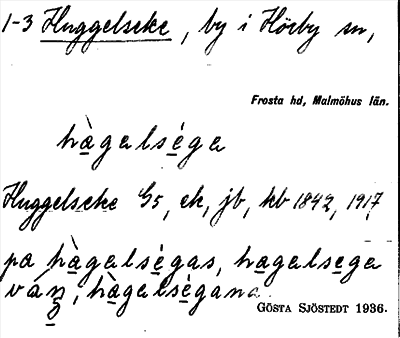 1-3 Huggelseke, by i Hörby sn,
Frosta hd, Malmöhus län.
hàgalséga
Huggelseke G5, ek, jb, kb 1842, 1917
pa hàgalségas, hagalsega
hàgalségana.
GÖSTA SJÖSTEDT 1936.